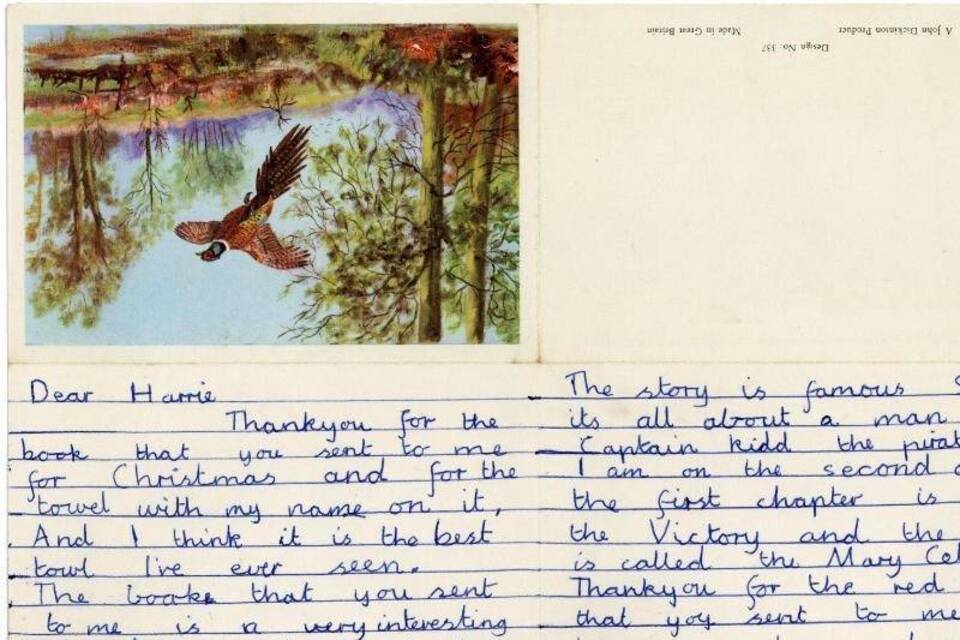 A John Dickinson Product
Made in Great Britain
Design No. 337
Dear Harrie
Thankyou for the
book that you sent to me
for Christmas and for the
towel with my name on it,
And I think it is the best
towl I've ever seen.
The book that you sent
to me is a very interesting
The story is famous
its all about a man
Captain kidd the pirat
I am on the second
the first chapter is
the Victory and the
is called the Mary Cel
Thankyou for the red
that yoy sent to me